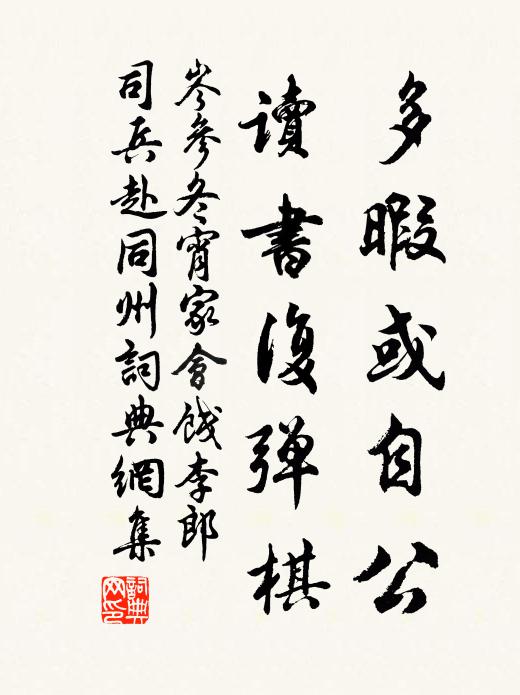 多暇或自公
讀書復弹棋
岑參冬宵家會餞李郎
司兵赴同州詞典網集
詞典网印